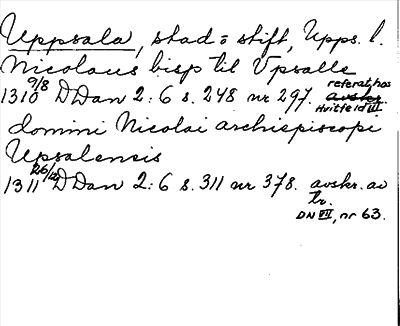 Uppsala, stad o stift, Upps. l.
Nicolaus bisp til Vpsalle
1310 9/8 DDan 2:6 s. 248 nr 297. referat hos avskr. Hvitfeld III
domini Nicolai archispiscope
Upsalensis
1311 26/12 DDan 2:6 s. 311 nr 378. avskr. av
tr.
DN VII, nr 63.